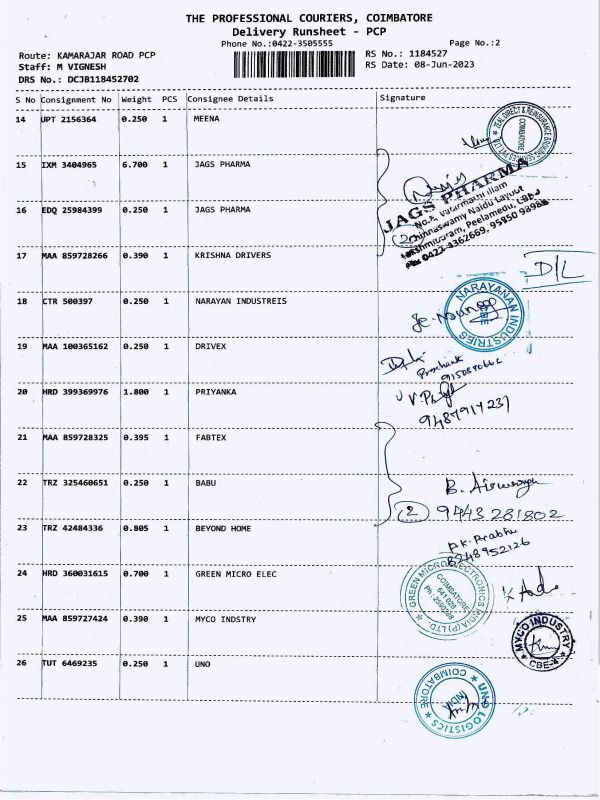 THE PROFESSIONAL COURIERS, COIMBATORE
Delivery Runsheet - PCP
Phone No.:0422-3505555
Page No.:2
Route: KAMARAJAR ROAD PCP
RS No.: 1184527
Staff: M VIGNESH
RS Date: 08-Jun-2023
DRS No.: DCJB118452702
S No Consignment No Weight PCS Consignee Details Signature
14 UPT 2156364 0.250 1 MEENA
COIMBATORE
15 IXM 3404965 6.700 1 JAGS PHARMA
JAGS PHARMA
16 EDQ 25984399 0.250 1 JAGS PHARMA
17 MAA 859728266 0.390 1 KRISHNA DRIVERS
D/L
18 CTR 500397 0.250 1 NARAYAN INDUSTREIS
NARAYANAN INDUSTRIES
19 MAA 100365162 0.250 1 DRIVEX
20 HRD 399369976 1.800 1 PRIYANKA
9487917231
21 MAA 859728325 0.395 1 FABTEX
22 TRZ 325460651 0.250 1 BABU
2 9443281802
23 TRZ 42484336 0.805 1 BEYOND HOME
P.K. Prabhu
8248952126
24 HRD 360031615 0.700 1 GREEN MICRO ELEC
GREEN MICRO ELECTRONICS INDIA (P) LTD.
COIMBATORE
25 MAA 859727424 0.390 1 MYCO INDSTRY
MYCO INDUSTRY
CBE-4
26 TUT 6469235 0.250 1 UNO
UNO LOGISTICS
COIMBATORE
INDIA